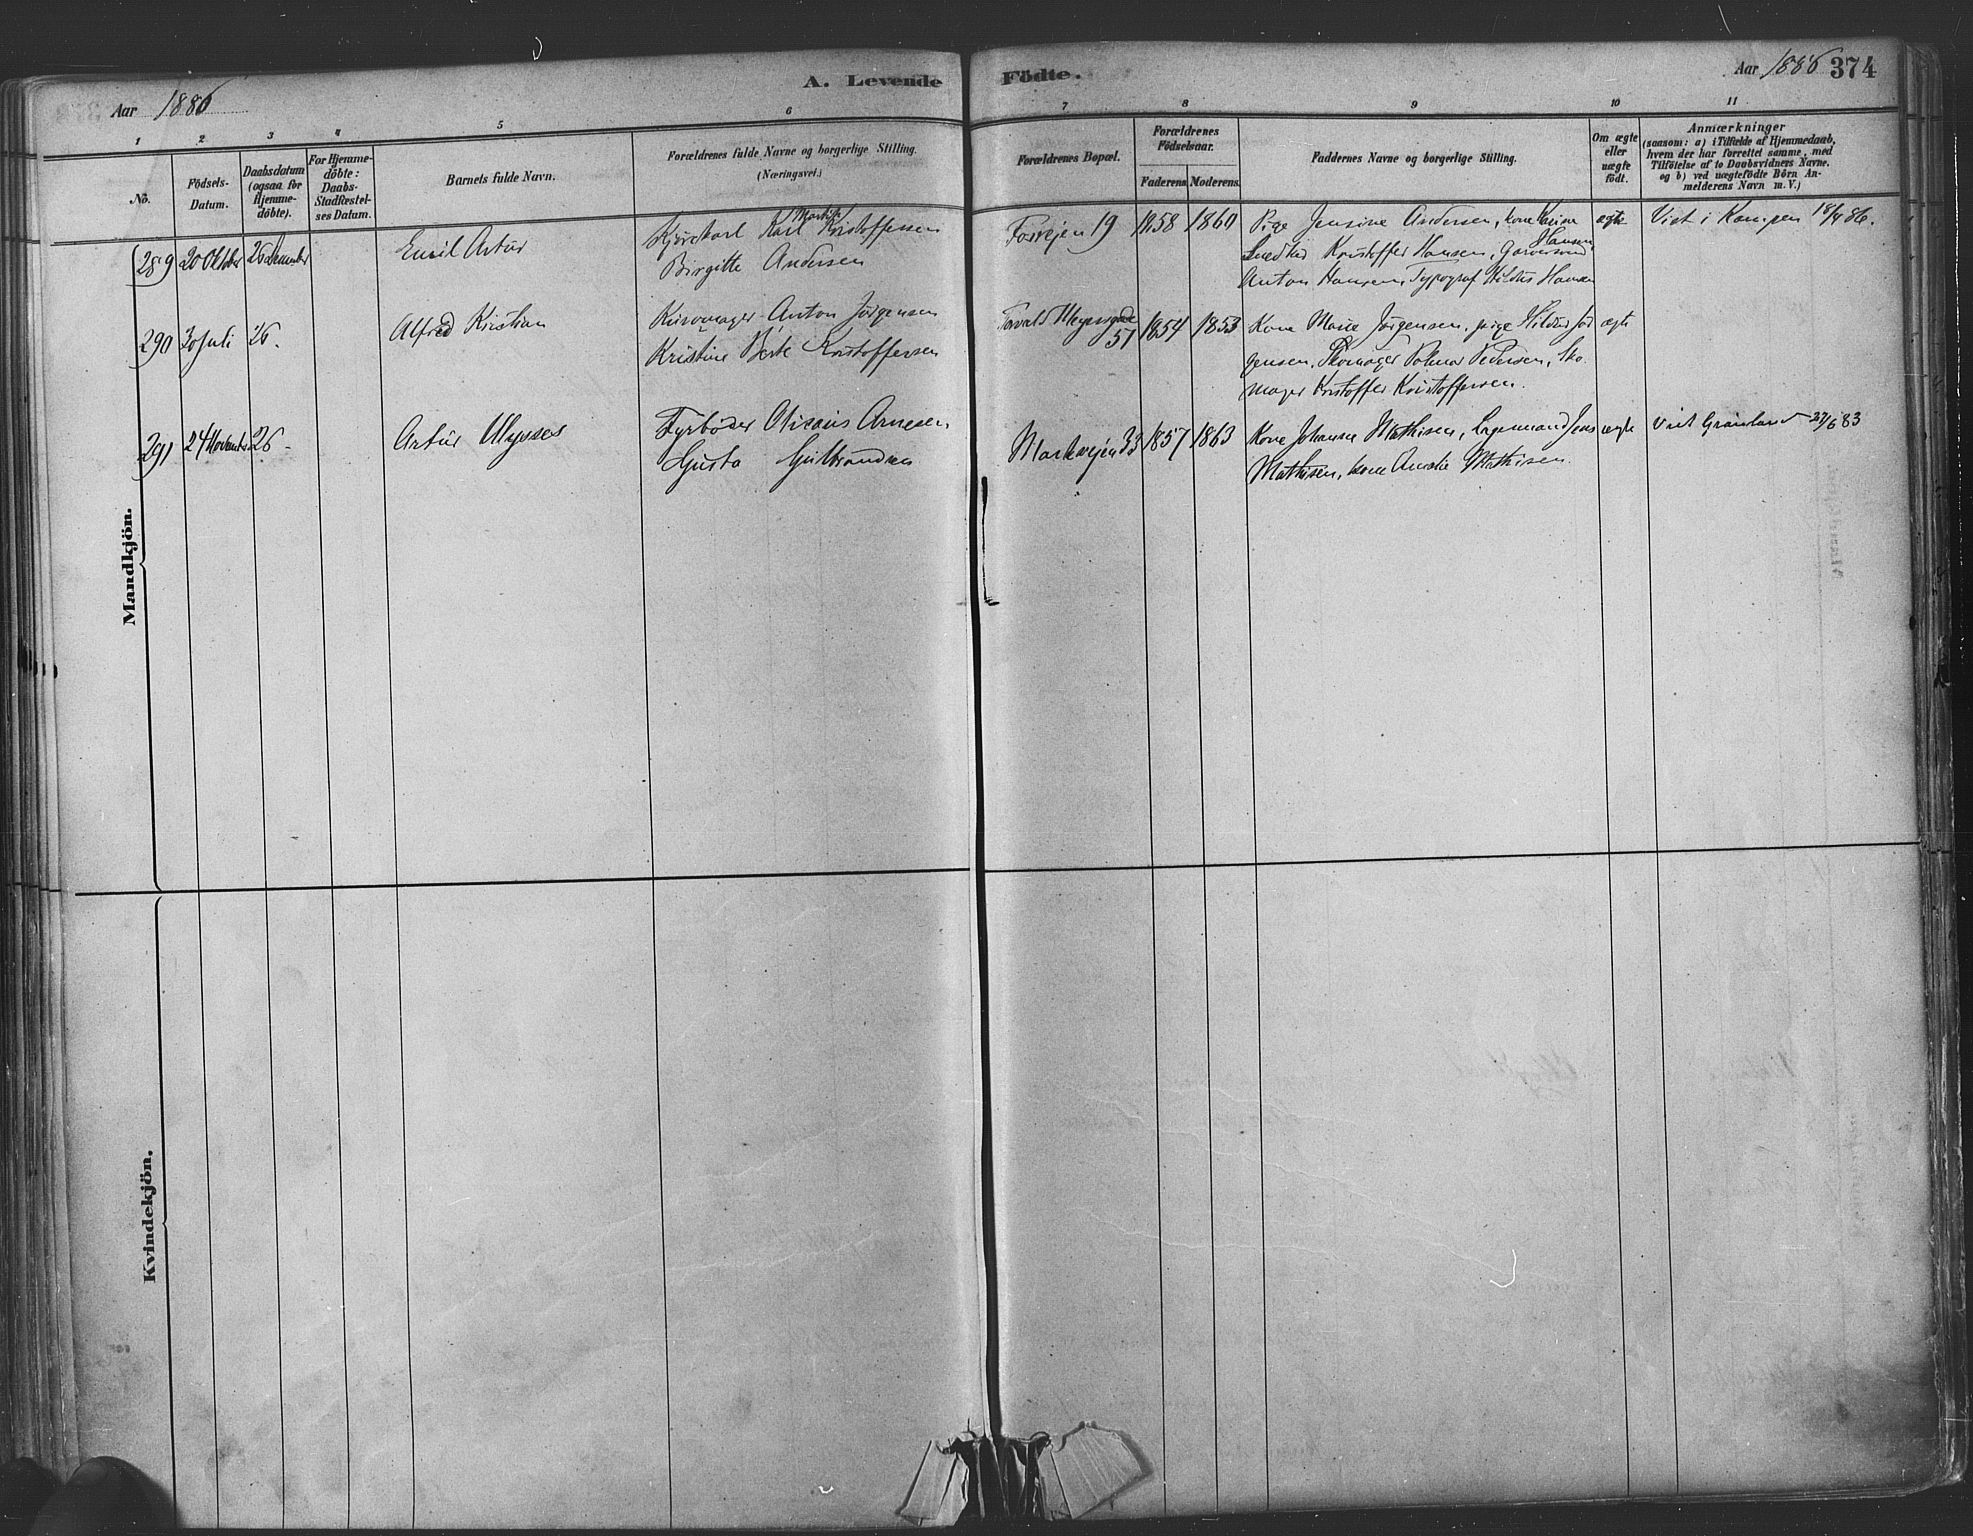 A. Levende Födte.
Aar 1886
Aar 1886 374
1 2 3 4 5 6 7 8 9 10 11
No.
Födsels-Datum.
Daabsdatum (ogsaa for Hjemme-döbte).
For Hjemme-döbte: Daabs-Stadfæstel-ses Datum.
Barnets fulde Navn.
Forældrenes fulde Navne og borgerlige Stilling. (Næringsvei.)
Forældrenes Bopæl.
Forældrenes Födselsaar.
Faderens Moderens.
Faddernes Navne og borgerlige Stilling.
Om ægte eller uægte födt.
Anmærkninger
(saasom: a) i Tilfælde af Hjemmedaab,
hvem der har forrettet samme, med
Tilföielse af to Daabsvidners Navne.
og b) ved uægtefödte Börn An-
melderens Navn m. V.)
Mandkjön.
289 20 Oktober 26 Desember
Emil Artur
Kjörekarl Karl Martin Kristoffersen
Birgitte Andersen
19 1858 1860
Pige Jensine Andersen, kone Karine Hansen
Snedker Kristoffer Hansen, Garversvend
Anton Hansen, Typograf Hansen
ægte
Viet i Kampen 18/4 86.
290 30 Juli 26.
Alfred Kristian
Kurvmager Anton Jörgensen
Kristine Berte Kristoffersen
Torvald Meyersgade
51 1854 1853
Kone Marie Jörgensen, pige Hilda Jör
gensen, Skomager Pedersen, Sko-
mager Kristoffer Kristoffersen.
ægte
291 24 November 26 -
Artur Ulysses
Fyrböder Arnesen
Gusta Gulbrandsen
Markveien 33 1857 1863
Kone Johanne Mathisen, Lagermand Jens
Mathisen, kone Amalie Mathisen.
ægte
Viet Grönland 27/6 83
Kvindekjön.